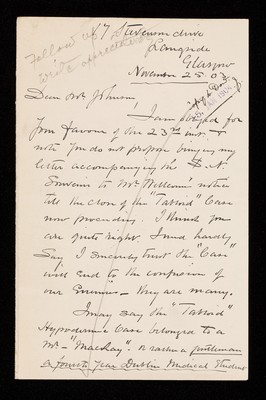 17 Stevenson drive
Langside
Glasgow
November 25. 03.
Follow up
write appreciating
Dear Mr Johnson,
I am obliged for
Your favour of the 23rd inst. &
note you do not propose bringing my
letter accompanying the
Souvenir to Mr Wellcome's notice
till the close of the "Tabloid" Case
now proceeding. I think you
are quite right. I need hardly
say I sincerely trust the "Case"
will end to the confusion of
our Enemies - they are many.
I may say the "Tabloid"
Hypodermic Case belonged to a
Mr - "Mackay". or rather a gentleman
a fourth year Dublin Medical Student